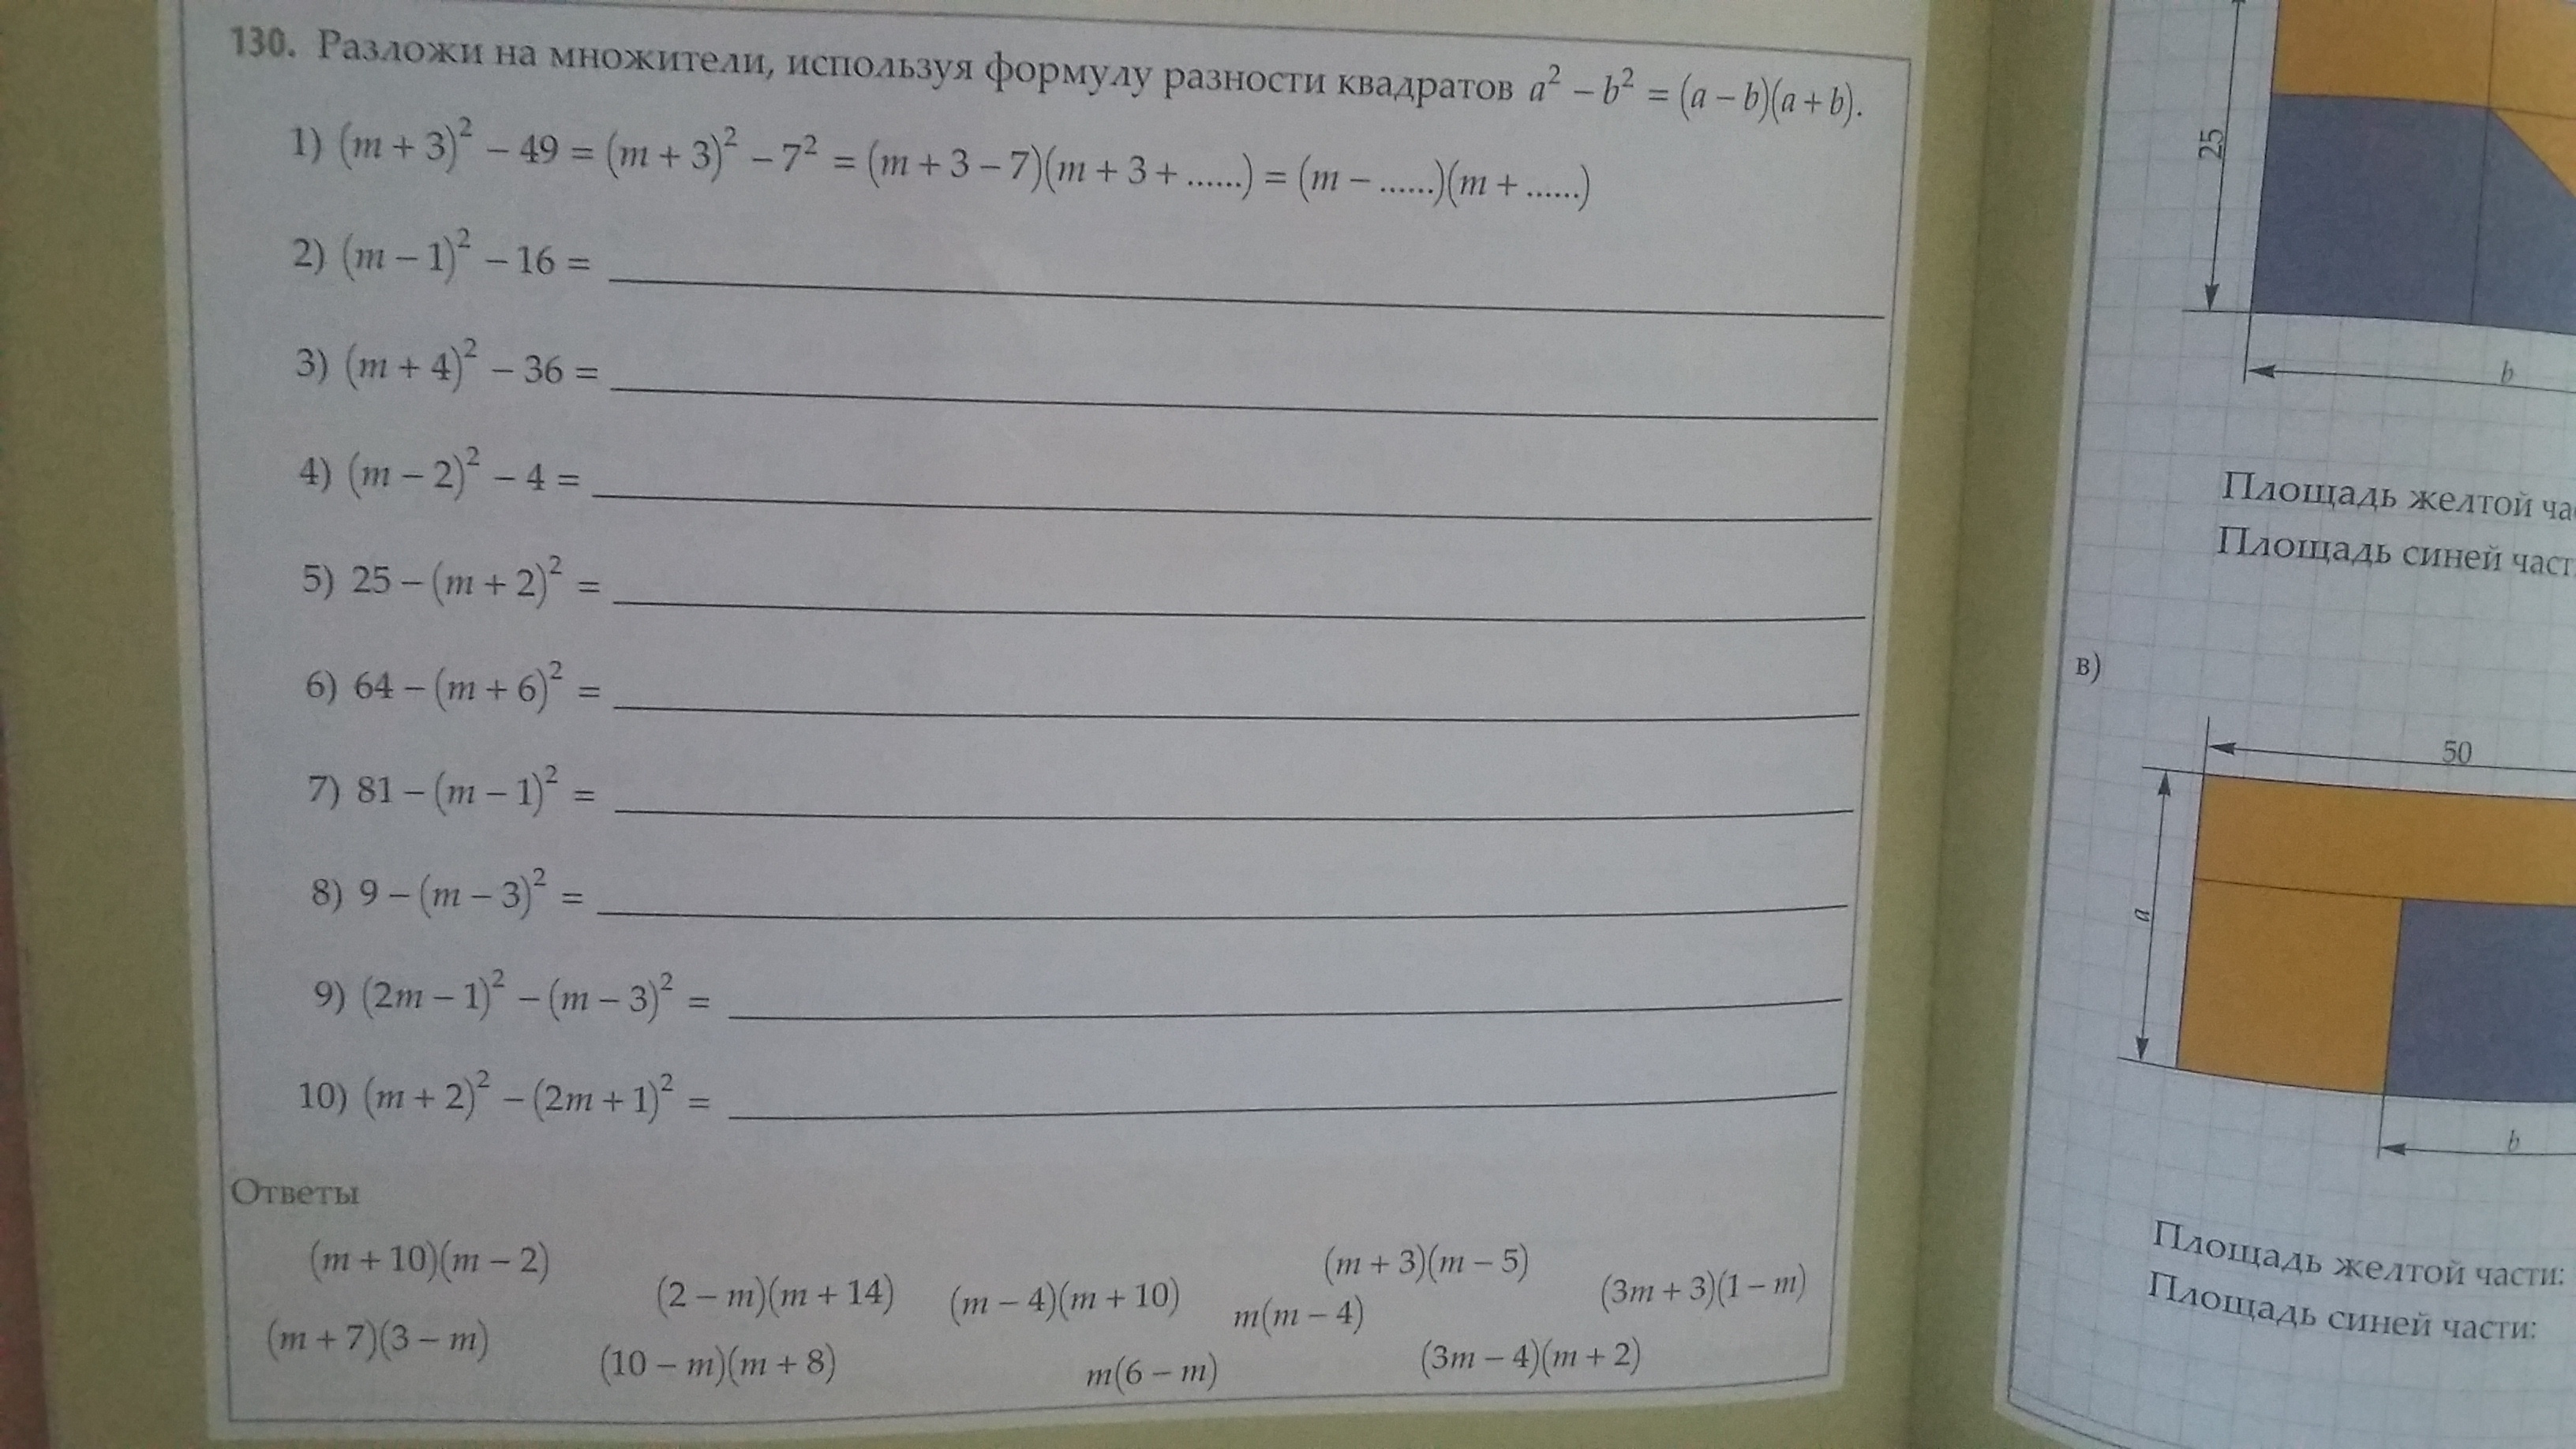 130. Разложи на множители, используя формулу разности квадратов a² – b² = (a – b)(a + b).
1) (m + 3)² – 49 = (m + 3)² – 7² = (m + 3 – 7)(m + 3 + ......) = (m – ......)(m + ......)
2) (m – 1)² – 16 =
3) (m + 4)² – 36 =
4) (m – 2)² – 4 =
5) 25 – (m + 2)² =
6) 64 – (m + 6)² =
7) 81 – (m – 1)² =
8) 9 – (m – 3)² =
9) (2m – 1)² – (m – 3)² =
10) (m + 2)² – (2m + 1)² =
Ответы
(m + 10)(m – 2)
(2 – m)(m + 14)
(m – 4)(m + 10)
(m + 3)(m – 5)
m(m – 4)
(3m + 3)(1 – m)
(m + 7)(3 – m)
(10 – m)(m + 8)
m(6 – m)
(3m – 4)(m + 2)
25
b
Площадь желтой
Площадь синей
в)
50
a
b
Площадь желтой части:
Площадь синей части: